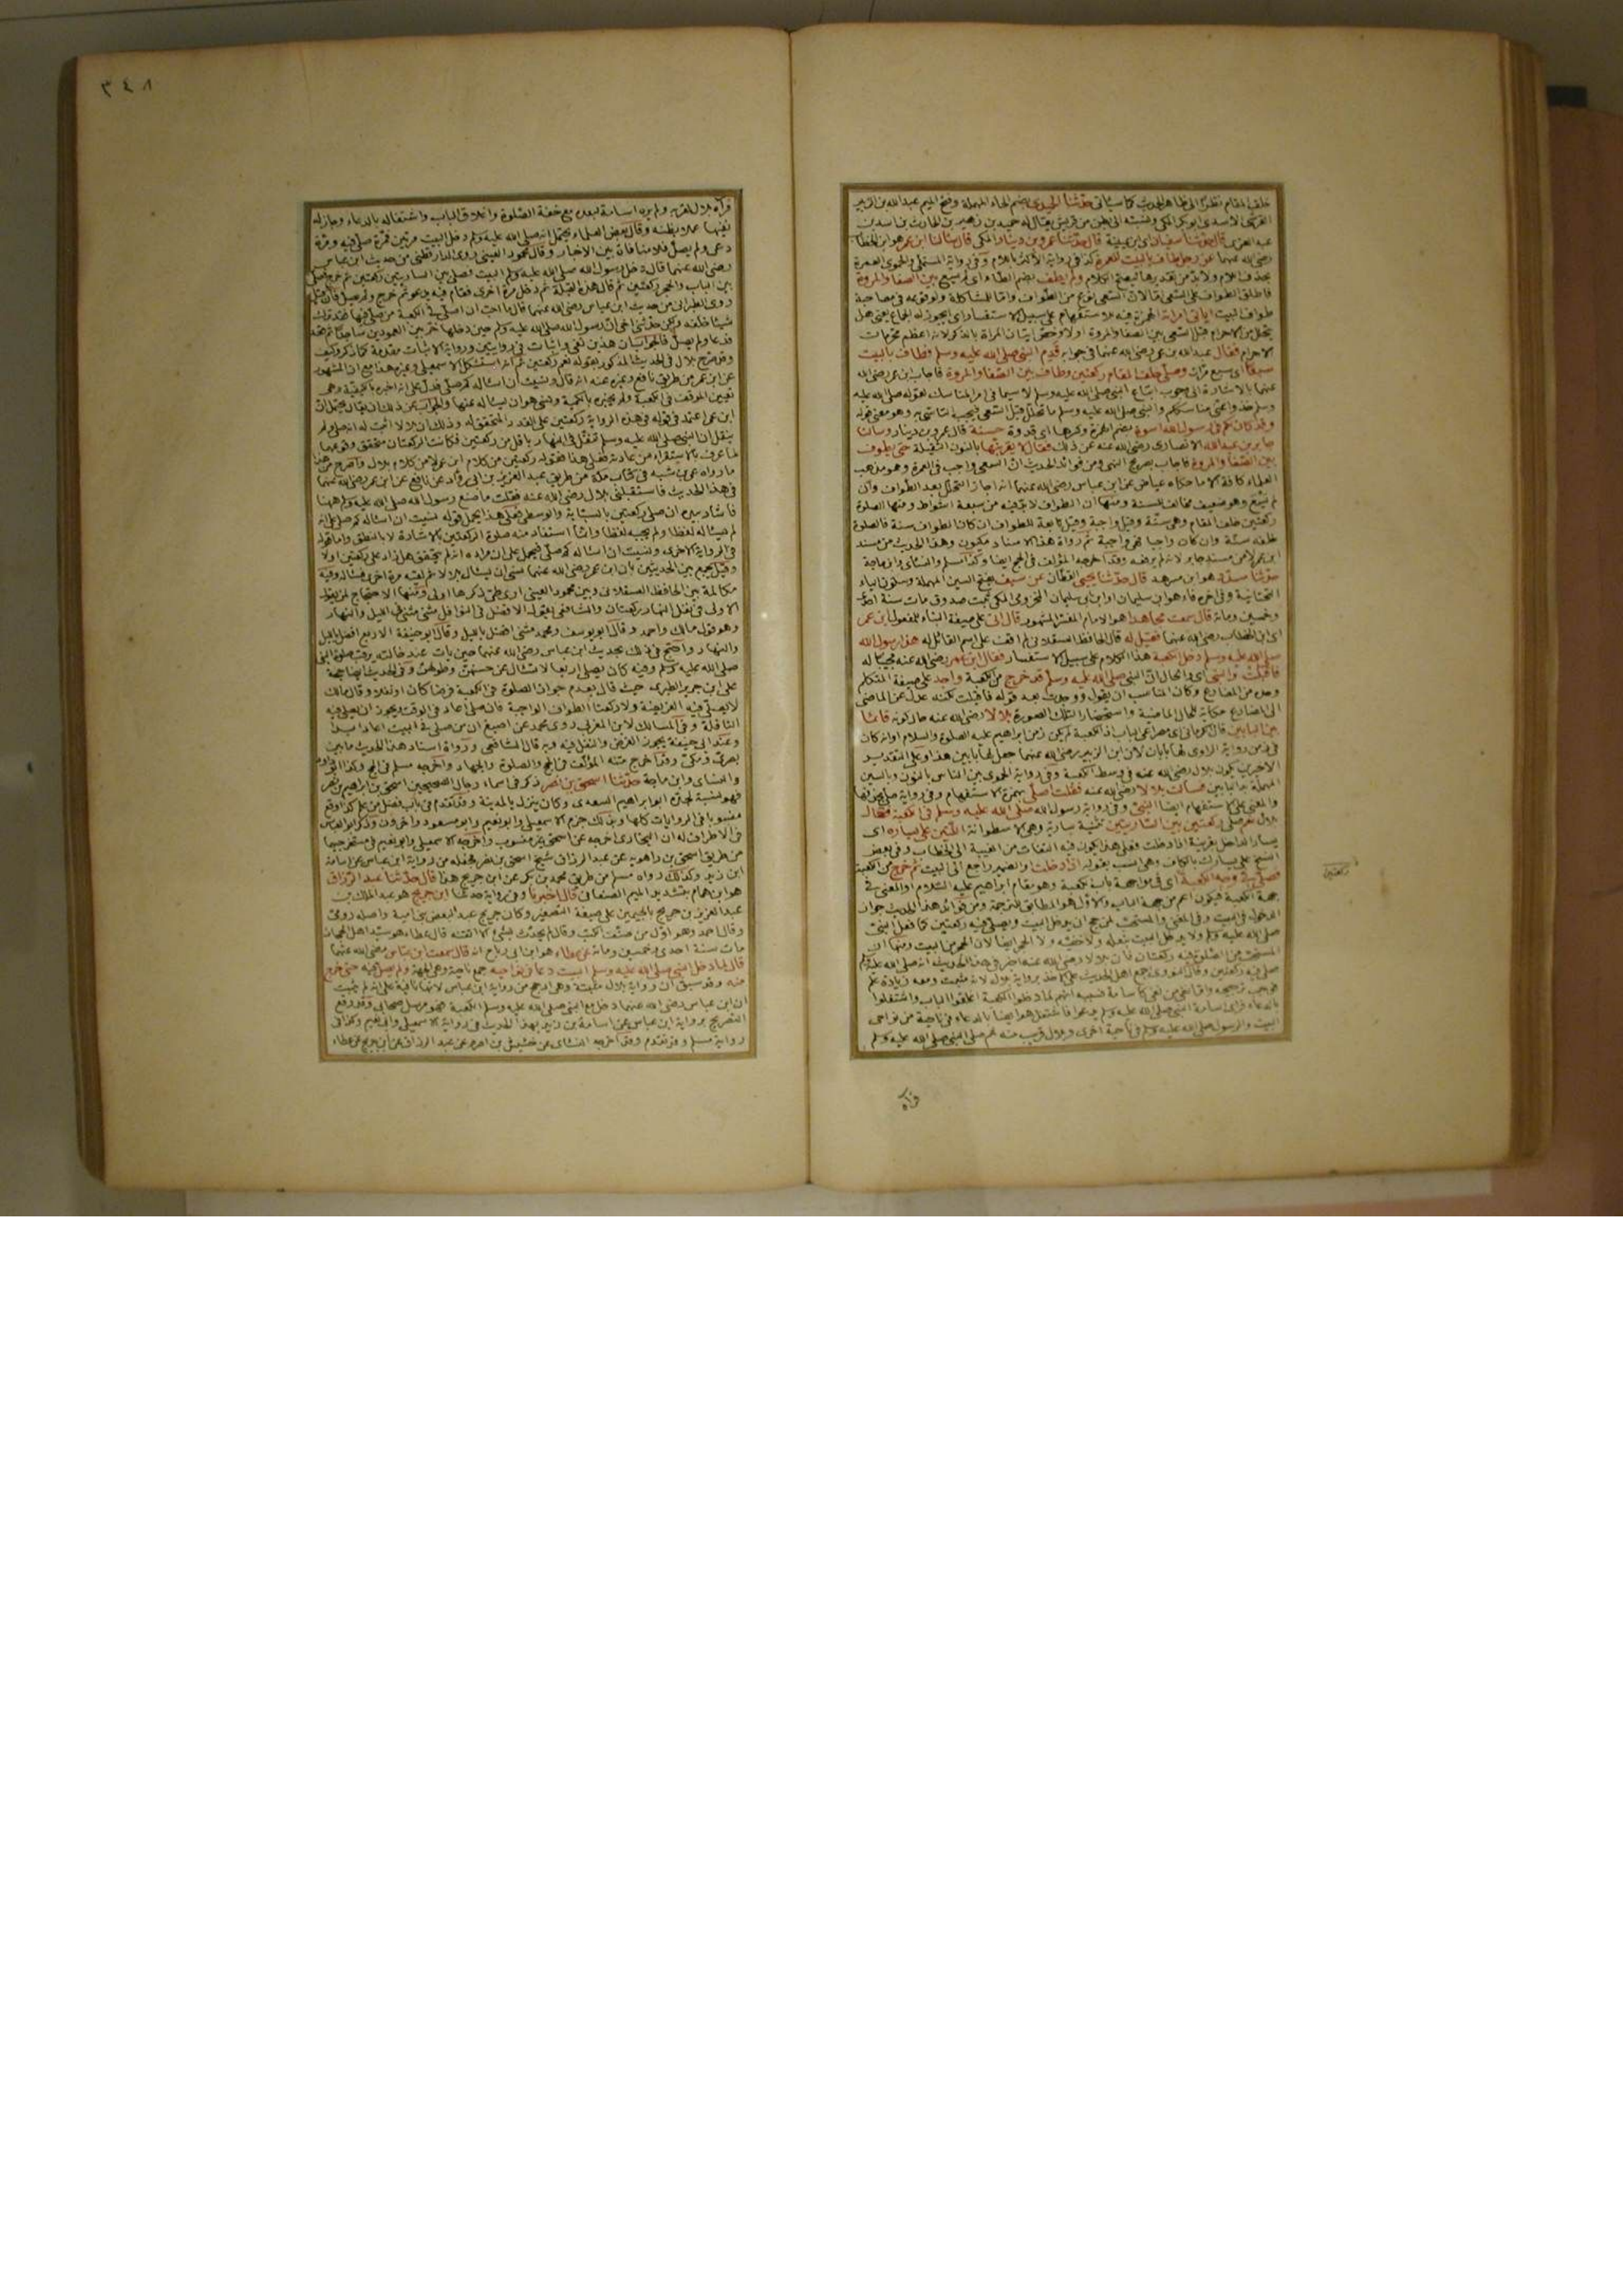 خلف المقام نظرًا الى ظاهر الحديث كما سيأتى حدّثنا الحميدى بضم الحاء المهملة وفتح الميم عبد الله بن الزبير
القرشى الاسدى ابو بكر المكى ونسبته الى بطن من قريش يقال له حميد بن زهير بن الحارث بن اسد بن
عبد العزى قال حدّثنا سفيان اى ابن عيينة قال حدّثنا عمرو بن دينار المكى قال سألنا ابن عمر هو ابن الخطاب
رضى الله عنهما عن رجل طاف بالبيت للعمرة كذا فى رواية الاكثر باللام وفى رواية المستملى والحموى العمرة
بحذف اللام ولا بد من تقديرها ليصح الكلام ولم يطف بضم الطاء اى لم يسع بين الصفا والمروة
فاطلق الطواف على السعى اما لان السعى نوع من الطواف واما للمشاكلة ولوقوعه فى مصاحبة
طواف البيت ايأتى امرأته الهمزة فيه للاستفهام على سبيل الاستفسار اى ايجوز له الجماع يعنى هل
يتحلل من الاحرام قبل السعى بين الصفا والمروة اولا وخص اتيان المرأة بالذكر لانه اعظم محرمات
الاحرام فقال عبد الله بن عمر رضى الله عنهما فى جوابه قدم النبى صلى الله عليه وسلم فطاف بالبيت
سبعًا اى سبع مرات وصلى خلف المقام ركعتين وطاف بين الصفا والمروة فاجاب ابن عمر رضى الله
عنهما بالاشارة الى وجوب اتباع النبى صلى الله عليه وسلم لا سيما فى امر المناسك لقوله صلى الله عليه
وسلم خذوا عنى مناسككم والنبى صلى الله عليه وسلم ما تحلل قبل السعى فيجب التأسى به وهو معنى قوله
وقد كان لكم فى رسول الله اسوة بضم الهمزة وكسرها اى قدوة حسنة قال عمرو بن دينار وسألنا
جابر بن عبد الله الانصارى رضى الله عنه عن ذلك فقال لا يقربنها بالنون الثقيلة حتى يطوف
بين الصفا والمروة فاجاب بصريح النهى ومن فوائد الحديث ان السعى واجب فى العمرة وهو مذهب
العلماء كافة الا ما حكاه عياض عن ابن عباس رضى الله عنهما انه اجاز التحلل بعد الطواف وان
لم يسع وهو ضعيف مخالف للسنة ومنها ان الطواف لا بد فيه من سبعة اشواط ومنها الصلوة
ركعتين خلف المقام وهى سنة وقيل واجبة وقيل تابعة للطواف ان كان الطواف سنة فالصلوة
خلفه سنة وان كان واجبا فهى واجبة ثم رواة هذا الاسناد مكيون وهذا الحديث من مسند
ابن عمر لا من مسند جابر لانه لم يرفعه وقد اخرجه المؤلف فى الحج ايضا وكذا مسلم والنسائى وابن ماجة
حدّثنا مسدّد هو ابن مسرهد قال حدّثنا يحيى القطان عن سيف بفتح السين المهملة وسكون الياء
التحتانية وفى آخره فاء هو ابن سليمان او ابن ابى سليمان المخزومى المكى ثبت صدوق مات سنة احدى
وخمسين ومائة قال سمعت مجاهدا هو الامام المفسر المشهور قال اتى على صيغة البناء للمفعول ابن عمر
اى ابن الخطاب رضى الله عنهما فقيل له قال الحافظ العسقلانى لم اقف على اسم القائل له هذا رسول الله
صلى الله عليه وسلم دخل الكعبة هذا الكلام على سبيل الاستفسار فقال ابن عمر رضى الله عنه مجيبا له
فاقبلت والنبى اى والحال ان النبى صلى الله عليه وسلم قد خرج من الكعبة واجد على صيغة المتكلم
وحده من المضارع وكان المناسب ان يقول ووجدت بعد قوله فاقبلت لكنه عدل عن الماضى
الى المضارع حكاية للحال الماضية واستحضارا لتلك الصورة بلالا رضى الله عنه حال كونه قائما
بين البابين قال الكرمانى اى مصراعى الباب اذ الكعبة لم يكن زمن ابراهيم عليه الصلوة والسلام او انه كان
فى زمن رواية الراوى لها بابان لان ابن الزبير رضى الله عنهما جعل لها بابين هذا وعلى التقدير
الاخير يكون بلال رضى الله عنه فى وسط الكعبة وفى رواية الحموى بين الناس بالنون وبالسين
المهملة بدل البابين فسألت بلالا رضى الله عنه فقلت اصلى بهمزة الاستفهام وفى رواية صلى بحذفها
والمعنى على الاستفهام ايضا النبى وفى رواية رسول الله صلى الله عليه وسلم فى الكعبة فقال
بلال نعم صلى ركعتين بين الساريتين تثنية سارية وهى الاسطوانة اللتين على يساره اى
يسار الداخل بقرينة اذا دخلت فعلى هذا يكون فيه التفات من الغيبة الى الخطاب وفى بعض
النسخ على يسارك بالكاف وهى انسب بقوله اذا دخلت والضمير راجع الى البيت ثم خرج من الكعبة
فصلى فى وجه الكعبة اى فى مواجهة باب الكعبة وهو مقام ابراهيم عليه السلام او المعنى فى
جهة الكعبة فيكون اعم من جهة الباب والاول هو المطابق للترجمة ومن فوائد هذا الحديث جواز
الدخول فى البيت وفى المغنى والمستحب لمن حج ان يدخل البيت ويصلى فيه ركعتين كما فعل النبى
صلى الله عليه وسلم ولا يدخل البيت بنعله ولا خفيه ولا الحجر ايضا لان الحجر من البيت ومنها ان
المستحب من الصلوة فيه ركعتان فان بلالا رضى الله عنه اخبر فى هذا الحديث انه صلى الله عليه وسلم
صلى فيه ركعتين وقال النووى اجمع اهل الحديث على الاخذ برواية بلال لانه مثبت ومعه زيادة علم
فوجب ترجيحه واما نفى من نفى كأسامة فسببه انهم لما دخلوا الكعبة اغلقوا الباب واشتغلوا
بالدعاء فرأى اسامة النبى صلى الله عليه وسلم يدعو فاشتغل هو ايضا بالدعاء فى ناحية من نواحى
البيت والرسول صلى الله عليه وسلم فى ناحية اخرى وبلال قريب منه ثم صلى النبى صلى الله عليه وسلم
ركعتين
فرآه
٣٤٨
فرآه بلال لقربه ولم يره اسامة لبعده مع خفة الصلوة واغلاق الباب واشتغاله بالدعاء وجاز له
نفيها عملا بظنه وقال بعض العلماء يحتمل انه صلى الله عليه وسلم دخل البيت مرتين فمرة صلى فيه ومرة
دعى ولم يصل فلا منافاة بين الاخبار وقال محمود العينى روى الدارقطنى من حديث ابن عباس
رضى الله عنهما قال دخل رسول الله صلى الله عليه وسلم البيت فصلى بين الساريتين ركعتين ثم خرج فصلى
بين الباب والحجر ركعتين ثم قال هذه القبلة ثم دخل مرة اخرى فقام فيه يدعو ثم خرج ولم يصل
روى الطبرانى من حديث ابن عباس رضى الله عنهما قال ما احب ان اصلى فى الكعبة من صلى فيها فقد ترك
شيئا خلفه ولكن حدّثنى اخى ان رسول الله صلى الله عليه وسلم حين دخلها خر بين العمودين ساجدا ثم قعد
فدعا ولم يصل
وقد صرح بلال فى الحديث المذكور بقوله نعم ركعتين ثم انه استشكل الاسمعيلى وغيره هذا مع ان المشهور
عن ابن عمر من طريق نافع وغيره عنه انه قال ونسيت ان اسأله كم صلى فدل على انه اخبره بالكيفية وهى
تعيين الموقف فى الكعبة ولم يخبره بالكمية ونسى هو ان يسأله عنها والجواب عن ذلك ان يقال يحتمل ان
ابن عمر اعتمد فى قوله فى هذه الرواية ركعتين على القدر المتحقق له وذلك ان بلالا اثبت له انه صلى ولم
ينقل ان النبى صلى الله عليه وسلم تنفل فى النهار باقل من ركعتين فكانت الركعتان متحقق وقوعهما
لما عرف بالاستقراء من عادته فعلى هذا فقوله ركعتين من كلام ابن عمر لا من كلام بلال
ما رواه عمر بن شبة فى كتاب مكة من طريق عبد العزيز بن ابى رواد عن نافع عن ابن عمر رضى الله عنهما
فى هذا الحديث فاستقبلنى بلال رضى الله عنه فقلت ما صنع رسول الله صلى الله عليه وسلم ههنا
فاشار بيده ان صلى ركعتين بالسبابة والوسطى فعلى هذا يحمل قوله نسيت ان اسأله كم صلى على انه
لم يسأله لفظا ولم يجبه لفظا وانما استفاد منه صلوة الركعتين بالاشارة لا بالنطق واما قوله
فى الرواية الاخرى ونسيت ان اسأله كم صلى فيحمل على ان مراده انه لم يتحقق هل زاد على ركعتين اولا
وقيل يجمع بين الحديثين بان ابن عمر رضى الله عنهما نسى ان يسأل بلالا ثم لقيه مرة اخرى فسأله وفيه
مكالمة بين الحافظ العسقلانى وبين محمود العينى
الاولى فى نفل النهار ركعتان والشافعى يقول الافضل فى النوافل مثنى مثنى فى الليل والنهار
وهو قول مالك واحمد وقال ابو يوسف ومحمد مثنى افضل بالليل وقال ابو حنيفة الاربع افضل بالليل
والنهار واحتج فى ذلك بحديث ابن عباس رضى الله عنهما حين بات عند خالته يرقب صلوة النبى
صلى الله عليه وسلم وفيه كان يصلى اربعا لا تسأل عن حسنهن وطولهن وفى الحديث ايضا حجة
على ابن جرير الطبرى حيث قال بعدم جواز الصلوة فى الكعبة فرضا كان او نفلا وقال مالك
لا يصلى فيه الفريضة ولا ركعتا الطواف الواجبة فان صلى اعاد فى الوقت ويجوز ان يصلى فيه
النافلة وفى المسالك لابن العربى روى محمد عن اصبغ ان من صلى فى البيت اعاد ابدا
وعند ابى حنيفة يجوز الفرض والنفل فيه وبه قال الشافعى ورواة اسناد هذا الحديث ما بين
بصرى ومكى وقد اخرج متنه المؤلف فى الحج والصلوة والجهاد واخرجه مسلم فى الحج وكذا ابو داود
والنسائى وابن ماجة حدّثنا اسحق بن نصر ذكر فى اسماء رجال الصحيحين اسحق بن ابراهيم بن نصر
فهو بنسبة لجده ابو ابراهيم السعدى وكان ينزل بالمدينة وقد تقدم فى باب فضل من علم كذا وقع
منسوبا فى الروايات كلها وبذلك جزم الاسمعيلى وابو نعيم وابو مسعود وآخرون وذكر ابو العباس
فى الاطراف له ان البخارى اخرجه عن اسحق غير منسوب واخرجه الاسمعيلى وابو نعيم فى مستخرجيهما
من طريق اسحق بن راهويه عن عبد الرزاق شيخ اسحق بن نصر فجعله من رواية ابن عباس عن اسامة
ابن زيد وكذلك رواه مسلم من طريق محمد بن بكر عن ابن جريج هذا قال حدّثنا عبد الرّزاق
هو ابن همام بتشديد الميم الصنعانى قال اخبرنا وفى رواية حدثنا ابن جريج هو عبد الملك بن
عبد العزيز بن جريج بالجيمين على صيغة التصغير وكان جريج عبدا لبعض بنى امية واصله رومى
وقال احمد وهو اول من صنف الكتب وقال لم يحدث بشئ الا اتقنه قال عطاء هو سيد اهل الحجاز
مات سنة احدى وخمسين ومائة عن عطاء هو ابن ابى رباح انه قال سمعت ابن عبّاس رضى الله عنهما
قال لما دخل النبى صلى الله عليه وسلم البيت دعا فى نواحيه جمع ناحية وهى الجهة ولم يصل فيه حتى خرج
منه وقد سبق ان رواية بلال مثبتة وهى ارجح من رواية ابن عباس لانها نافية على انه لم يثبت
ان ابن عباس رضى الله عنهما دخل مع النبى صلى الله عليه وسلم الكعبة فهو مرسل صحابى وقد وقع
التصريح برواية ابن عباس عن اسامة بن زيد لهذا الحديث فى رواية الاسمعيلى وابى نعيم وكذا فى
رواية مسلم وقد تقدم وقد اخرجه النسائى عن خشيش بن اصرم عن عبد الرزاق عن ابن جريج عن عطاء